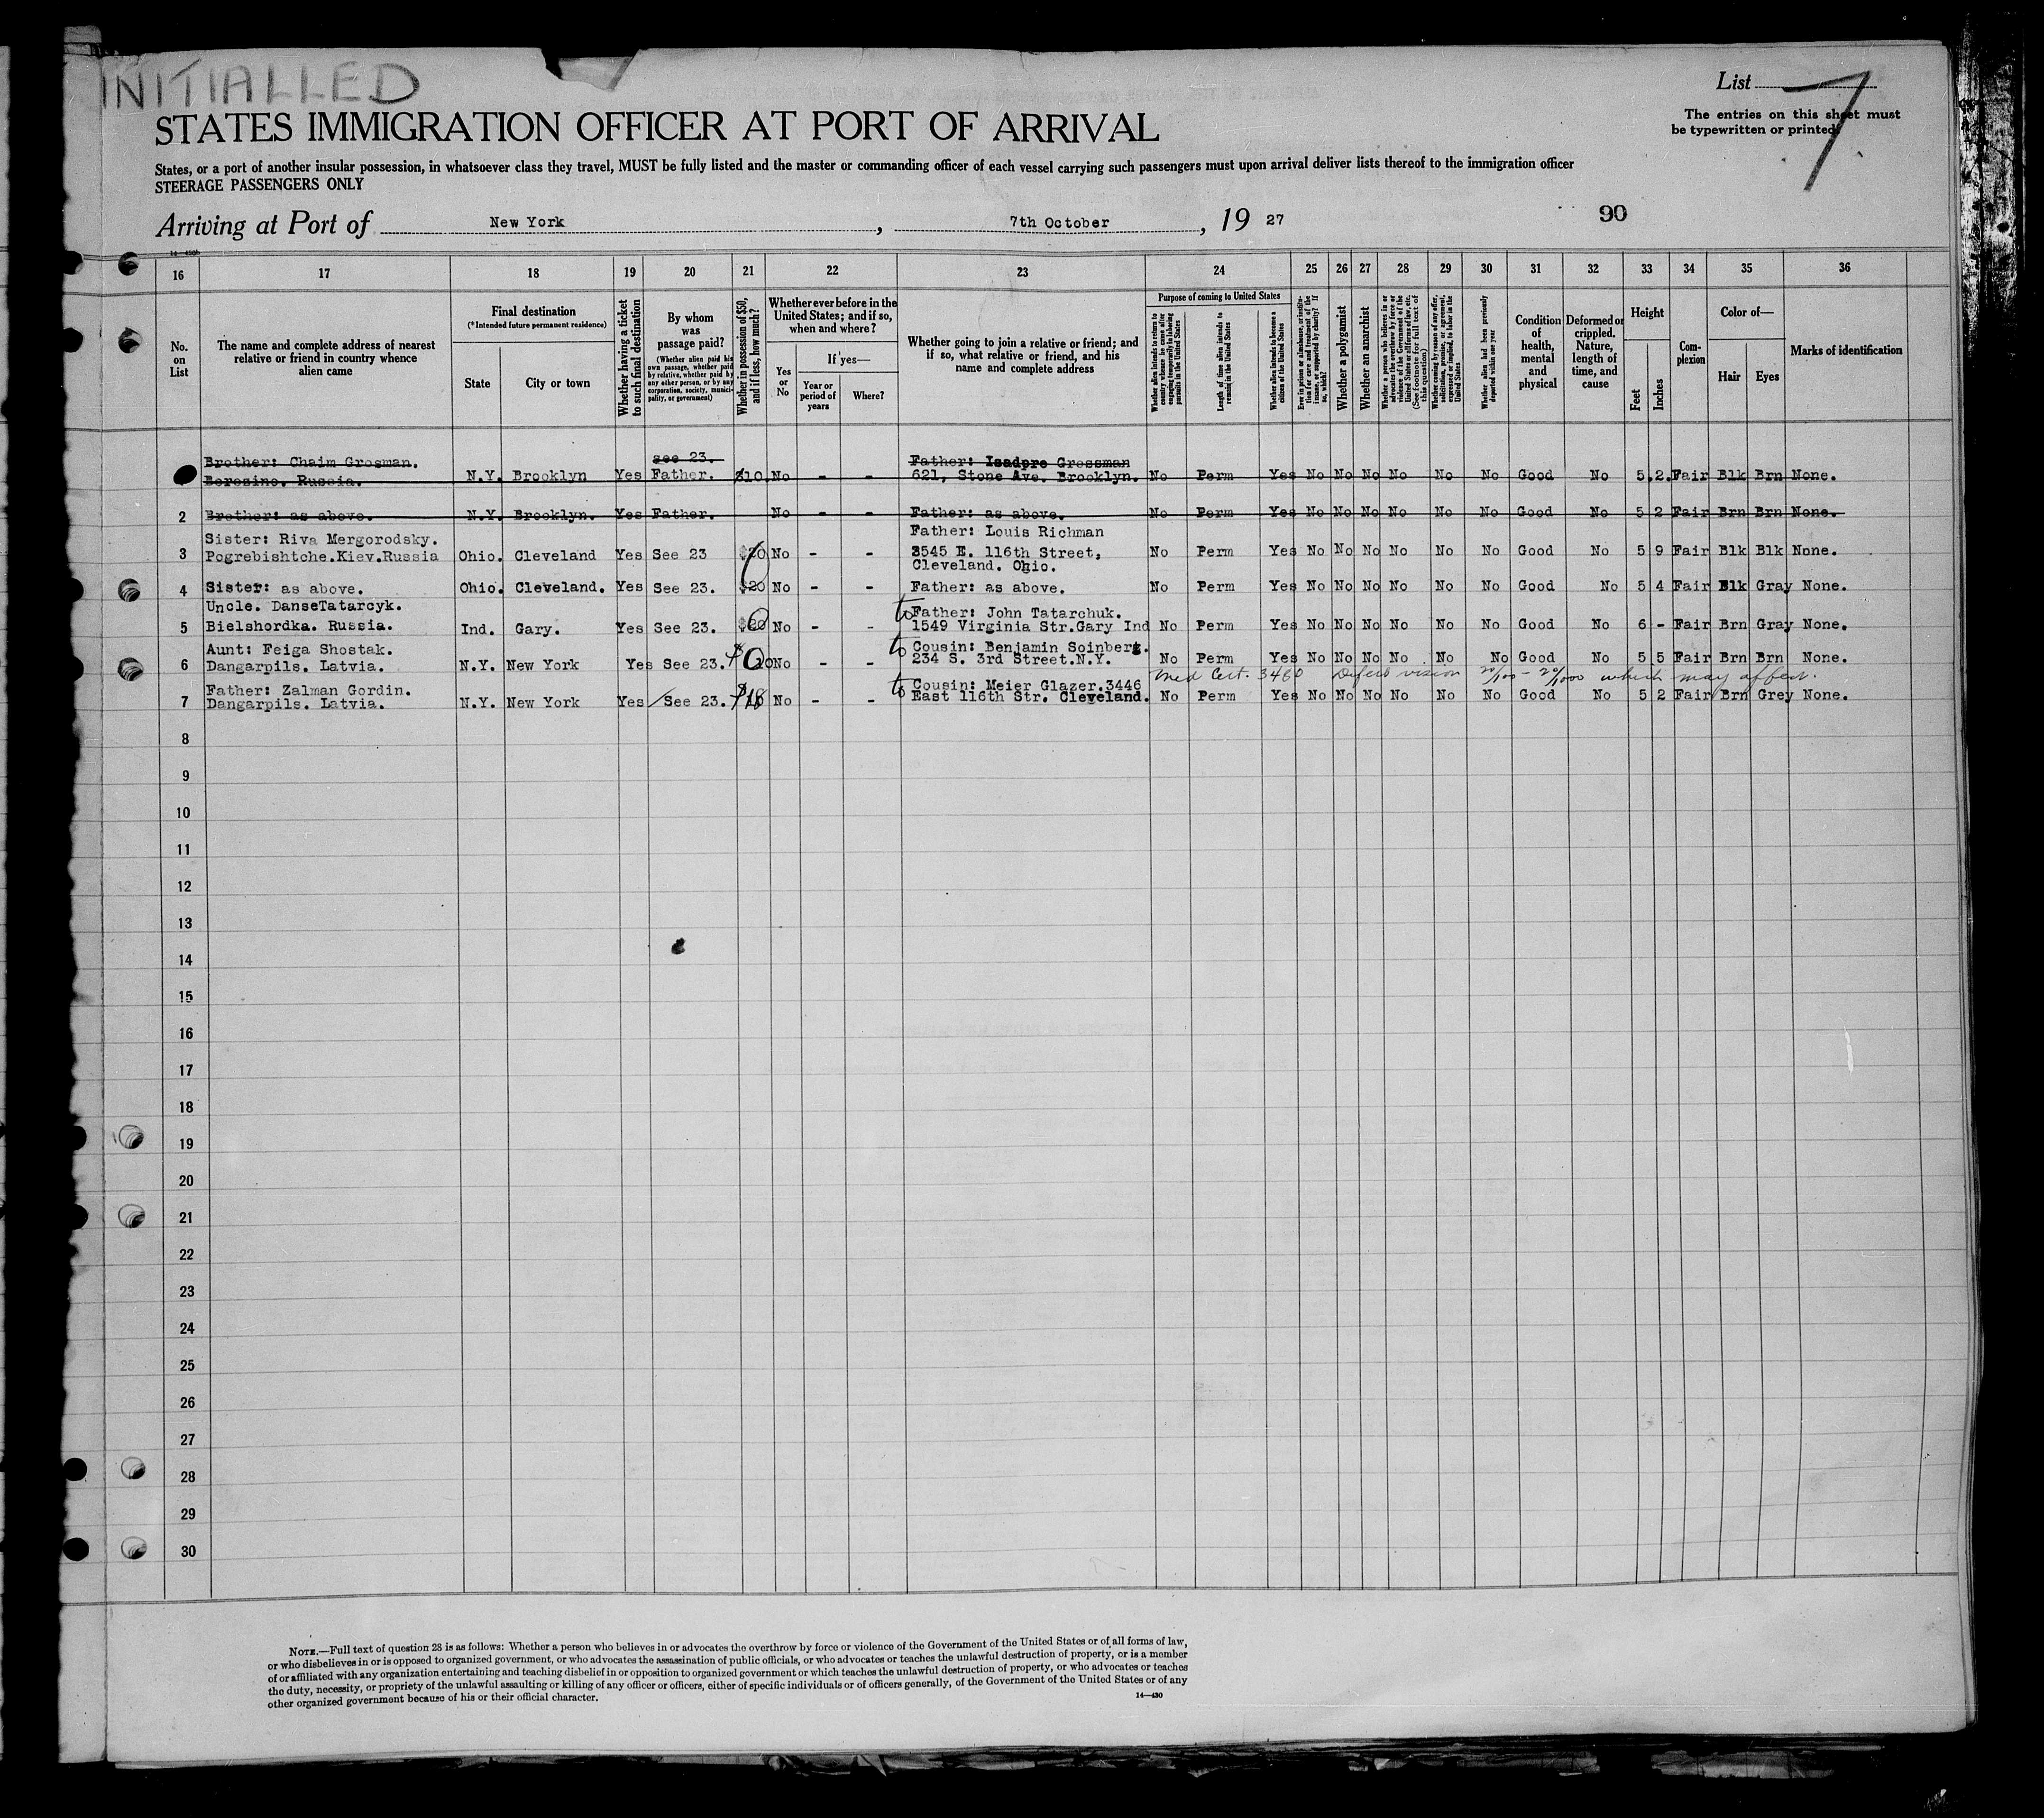 INITIALLED
List 7
The entries on this sheet must
be typewritten or printed
STATES IMMIGRATION OFFICER AT PORT OF ARRIVAL
States, or a port of another insular possession, in whatsoever class they travel, MUST be fully listed and the master or commanding officer of each vessel carrying such passengers must upon arrival deliver lists thereof to the immigration officer
STEERAGE PASSENGERS ONLY
Arriving at Port of New York, 7th October, 19 27
90
16 17 18 19 20 21 22 23 24 25 26 27 28 29 30 31 32 33 34 35 36
No. on List
The name and complete address of nearest
relative or friend in country whence
alien came
Final destination
(*Intended future permanent residence)
State
City or town
Whether having a ticket
to such final destination
By whom
was
passage paid?
(Whether alien paid his
own passage, whether paid
by relative, whether paid by
any other person, or by any
corporation, society, munici-
pality, or government)
Whether in possession of $50,
and if less, how much?
Whether ever before in the
United States; and if so,
when and where?
Yes
or
No
If yes—
Year or
period of
years
Where?
Whether going to join a relative or friend; and
if so, what relative or friend, and his
name and complete address
Purpose of coming to United States
Whether alien intends to return to
country whence he came after
engaging temporarily in laboring
pursuits in the United States
Length of time alien intends to
remain in the United States
Whether alien intends to become a
citizen of the United States
Ever in prison or almshouse, or institu-
tion for care and treatment of the
insane, or supported by charity? If
so, which?
Whether a polygamist
Whether an anarchist
Whether a person who believes in or
advocates the overthrow by force or
violence of the Government of the
United States or all forms of law, etc.
(See footnote for full text of
this question)
Whether coming by reason of any offer,
solicitation, promise, or agreement,
expressed or implied, to labor in the
United States
Whether alien had been previously
deported within one year
Condition
of
health,
mental
and
physical
Deformed or
crippled.
Nature,
length of
time, and
cause
Height
Feet
Inches
Com-
plexion
Color of—
Hair
Eyes
Marks of identification
see 23.
Brother: Chaim Grosman. Father: Isadpre Grossman
Borozino. Russia. N.Y. Brooklyn Yes Father. $10. No - - 621, Stone Ave. Brooklyn. No Perm Yes No No No No No No Good No 5.2. Fair Blk Brn None.
2 Brother: as above. N.Y. Brooklyn. Yes Father. No - - Father: as above. No Perm Yes No No No No No No Good No 5 2 Fair Brn Brn None.
Sister: Riva Mergorodsky. Father: Louis Richman
3 Pogrebishtche.Kiev.Russia Ohio. Cleveland Yes See 23 $20 No - - 3545 E. 116th Street, No Perm Yes No No No No No No Good No 5 9 Fair Blk Blk None.
Cleveland. Ohio.
4 Sister: as above. Ohio. Cleveland. Yes See 23. $20 No - - Father: as above. No Perm Yes No No No No No No Good No 5 4 Fair Blk Gray None.
Uncle. DanseTatarcyk. to Father: John Tatarchuk.
5 Bielshordka. Russia. Ind. Gary. Yes See 23. No - - 1549 Virginia Str.Gary Ind No Perm Yes No No No No No No Good No 6 - Fair Brn Gray None.
Aunt: Feiga Shostak. to Cousin: Benjamin Soinberg.
6 Dangarpils. Latvia. N.Y. New York Yes See 23. No - - 234 S. 3rd Street.N.Y. No Perm Yes No No No No No No Good No 5 5 Fair Brn Brn None.
Med Cert. 3460 Defect vision 20/100 - 20/1000 which may affect.
Father: Zalman Gordin. to Cousin: Meier Glazer.3446
7 Dangarpils. Latvia. N.Y. New York Yes See 23. $18 No - - East 116th Str. Cleveland. No Perm Yes No No No No No No Good No 5 2 Fair Brn Grey None.
8
9
10
11
12
13
14
15
16
17
18
19
20
21
22
23
24
25
26
27
28
29
30
NOTE.—Full text of question 28 is as follows: Whether a person who believes in or advocates the overthrow by force or violence of the Government of the United States or of all forms of law,
or who disbelieves in or is opposed to organized government, or who advocates the assassination of public officials, or who advocates or teaches the unlawful destruction of property, or is a member
of or affiliated with any organization entertaining and teaching disbelief in or opposition to organized government or which teaches the unlawful destruction of property, or who advocates or teaches
the duty, necessity, or propriety of the unlawful assaulting or killing of any officer or officers, either of specific individuals or of officers generally, of the Government of the United States or of any
other organized government because of his or their official character.
14—430